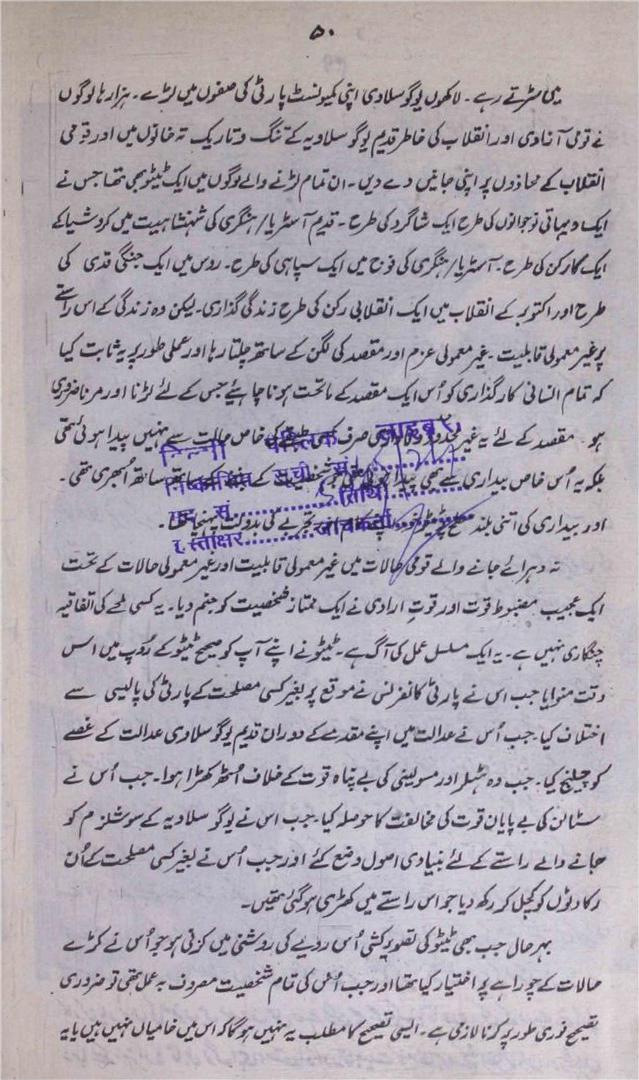 ۵۰
میں سڑتے رہے ۔ لاکھوں یوگوسلاوی اپنی کمیونسٹ پارٹی کی صفوں میں لڑے ۔ ہزارہا لوگوں
نے قومی آزادی اور انقلاب کی خاطر قدیم یوگوسلاویہ کے تنگ و تاریک تہ خانوں میں اور قومی
انقلاب کے محاذوں پر اپنی جانیں دے دیں ۔ ان تمام لڑنے والے لوگوں میں ایک ٹیٹو بھی تھا جس نے
ایک دیہاتی نوجوانوں کی طرح ایک شاگرد کی طرح ۔ قدیم آسٹریا/ہنگری کی شہنشاہیت میں کروشیا کے
ایک کارکن کی طرح ۔ آسٹریا/ہنگری کی فوج میں ایک سپاہی کی طرح ۔ روس میں ایک جنگی قیدی کی
طرح اور اکتوبر کے انقلاب میں ایک انقلابی رکن کی طرح زندگی گذاری ۔ لیکن وہ زندگی کے اس راستے
پر غیر معمولی قابلیت ۔ غیر معمولی عزم اور مقصد کی لگن کے ساتھ چلتا رہا اور عملی طور پر یہ ثابت کیا
کہ تمام انسانی کارگذاری کو اُس ایک مقصد کے ماتحت ہونا چاہیئے جس کے لئے لڑنا اور مرنا ضروری
ہو ۔ مقصد کے لئے یہ غیر محدود صرف کسی خاص حالت سے نہیں پیدا ہوئی تھی
بلکہ یہ اُس خاص بیداری سے بھی پیدا ہوئی تھی جو شخصیت کے ساتھ ساتھ اُبھری تھی ۔
اور بیداری کی اتنی بلند سطح پر ٹیٹو تجربے کی بدولت پہنچا تھا ۔
दिल्ली पब्लिक लाइब्रेरी
निष्कासित सूची सं
मद सं तिथि
हस्ताक्षर जांचकर्ता
نہ دہرائے جانے والے قومی حالات میں غیر معمولی قابلیت اور غیر معمولی حالات کے تحت
ایک عجیب مضبوط قوت اور قوتِ ارادی نے ایک ممتاز شخصیت کو جنم دیا ۔ یہ کسی لمحے کی اتفاقیہ
چنگاری نہیں ہے ۔ یہ ایک مسلسل عمل کی آگ ہے ۔ ٹیٹو نے اپنے آپ کو صحیح ٹیٹو کے رُوپ میں اس
وقت منوایا جب اس نے پارٹی کانفرنس نے موقع پر بغیر کسی مصلحت کے پارٹی کی پالیسی سے
اختلاف کیا ۔ جب اُس نے عدالت میں اپنے مقدمے کے دوران قدیم یوگوسلاوی عدالت کے غصے
کو چیلنج کیا ۔ جب وہ ہٹلر اور مسولینی کی بے پناہ قوت کے خلاف اُٹھ کھڑا ہوا ۔ جب اُس نے
سٹالن کی بے پایاں قوت کی مخالفت کا حوصلہ کیا ۔ جب اس نے یوگوسلاویہ کے سوشلزم کو
جانے والے راستے کے لئے بنیادی اصول وضع کئے اور جب اُس نے بغیر کسی مصلحت کے اُن
رکاوٹوں کو کچل کر رکھ دیا جو اس راستے میں کھڑی ہوگئی تھیں ۔
بہرحال جب بھی ٹیٹو کی تصویر کشی اُس رویے کی روشنی میں کرنی ہو جو اُس نے کڑے
حالات کے چوراہے پر اختیار کیا تھا اور جب اُس کی تمام شخصیت مصروف بہ عمل تھی تو ضروری
تصحیح فوری طور پر کرنا لازمی ہے ۔ ایسی تصحیح کا مطلب یہ نہیں ہوگا کہ اس میں خامیاں نہیں ہیں یا یہ